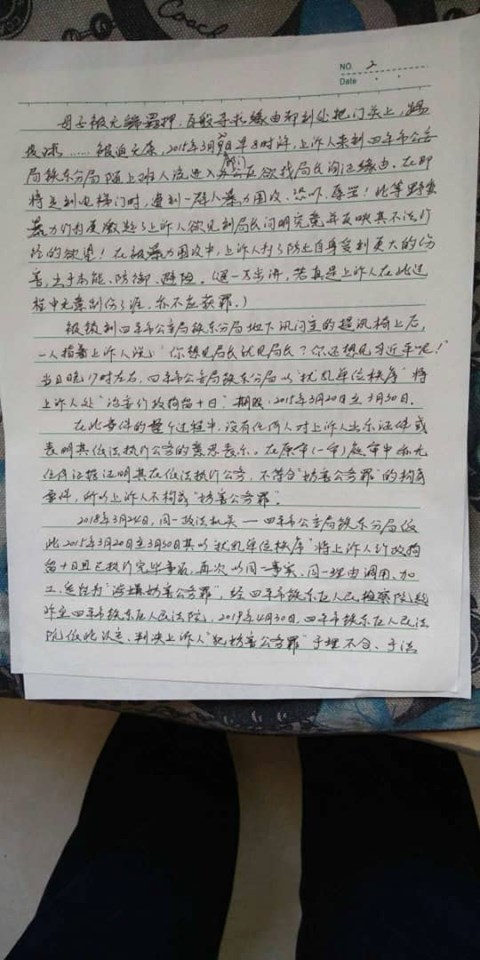 Coach
NO. 2
Date
母子被无端羁押，百般寻找缘由却到处把门关上，踢
皮球……被迫无奈，2015年3月20日早8时许，上诉人来到四平市公安
局铁东分局随上班人流进入办公区欲找局长问讯缘由，在即
将走到电梯门时，遭到一群人暴力围攻、恐吓、辱骂！此等野蛮
暴力行为更激起了上诉人欲见到局长问明究竟并反映其不法行
径的欲望！在被暴力围攻中，上诉人为了防止自身受到更大的伤
害，出于本能、防御、避险。（退一万步讲，若真是上诉人在此过
程中无意刮伤了谁，亦不应获罪。）
被挟制到四平市公安局铁东分局地下讯问室的提讯椅上后，
一人指着上诉人说："你想见局长就见局长？你还想见习近平呢！"
当日晚17时左右，四平市公安局铁东分局以"扰乱单位秩序"将
上诉人处"治安行政拘留十日"期限：2015年3月20日至3月30日。
在此事件的整个过程中，没有任何人对上诉人出示证件或
表明其依法执行公务的意思表示。在原审(一审)庭审中亦无
任何证据证明其在依法执行公务，不符合"妨害公务罪"的构成
要件，所以上诉人不构成"妨害公务罪"。
2018年3月24日，同一执法机关——四平市公安局铁东分局依
此2015年3月20日至3月30日其以"扰乱单位秩序"将上诉人行政拘
留十日且已执行完毕事宜，再次以同一事实、同一理由调用、加
工、定性为"涉嫌妨害公务罪"，经四平市铁东区人民检察院起
诉至四平市铁东区人民法院，2019年4月30日，四平市铁东区人民法
院依此认定、判决上诉人"犯妨害公务罪"于理不合、于法